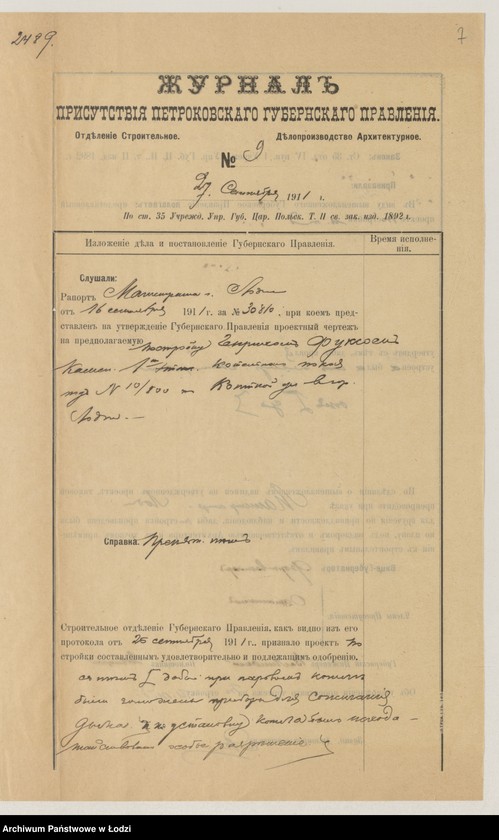 2489.
7
ЖУРНАЛЪ
ПРИСУТСТВІЯ ПЕТРОКОВСКАГО ГУБЕРНСКАГО ПРАВЛЕНІЯ.
Отдѣленіе Строительное. Дѣлопроизводство Архитектурное.
№ 9
27 Сентября 1911 г.
По ст. 35 Учрежд. Упр. Губ. Цар. Польск. Т. II св. зак. изд. 1892 г.
Изложеніе дѣла и постановленіе Губернскаго Правленія.
Время исполненія.
Слушали:
Рапортъ Магистрата г. Лодзи
отъ 16 сентября 1911 г. за № 30810, при коемъ пред-
ставленъ на утвержденіе Губернскаго Правленія проектный чертежъ
на предполагаемую постройку Генрихомъ Фуксомъ
камен. 1 этаж.
подъ № 10/800 по ул. въ гор.
Лодзи. —
Справка:
Строительное отдѣленіе Губернскаго Правленія, какъ видно изъ его
протокола отъ 26 сентября 1911 г., признало проектъ по
стройки составленнымъ удовлетворительно и подлежащимъ одобренію,
съ тѣмъ дабы при паровомъ котлѣ
были приборы для сожиганія
дыма и на установку котла было исхода-
тайствовано особое разрѣшеніе
Archiwum Państwowe w Łodzi